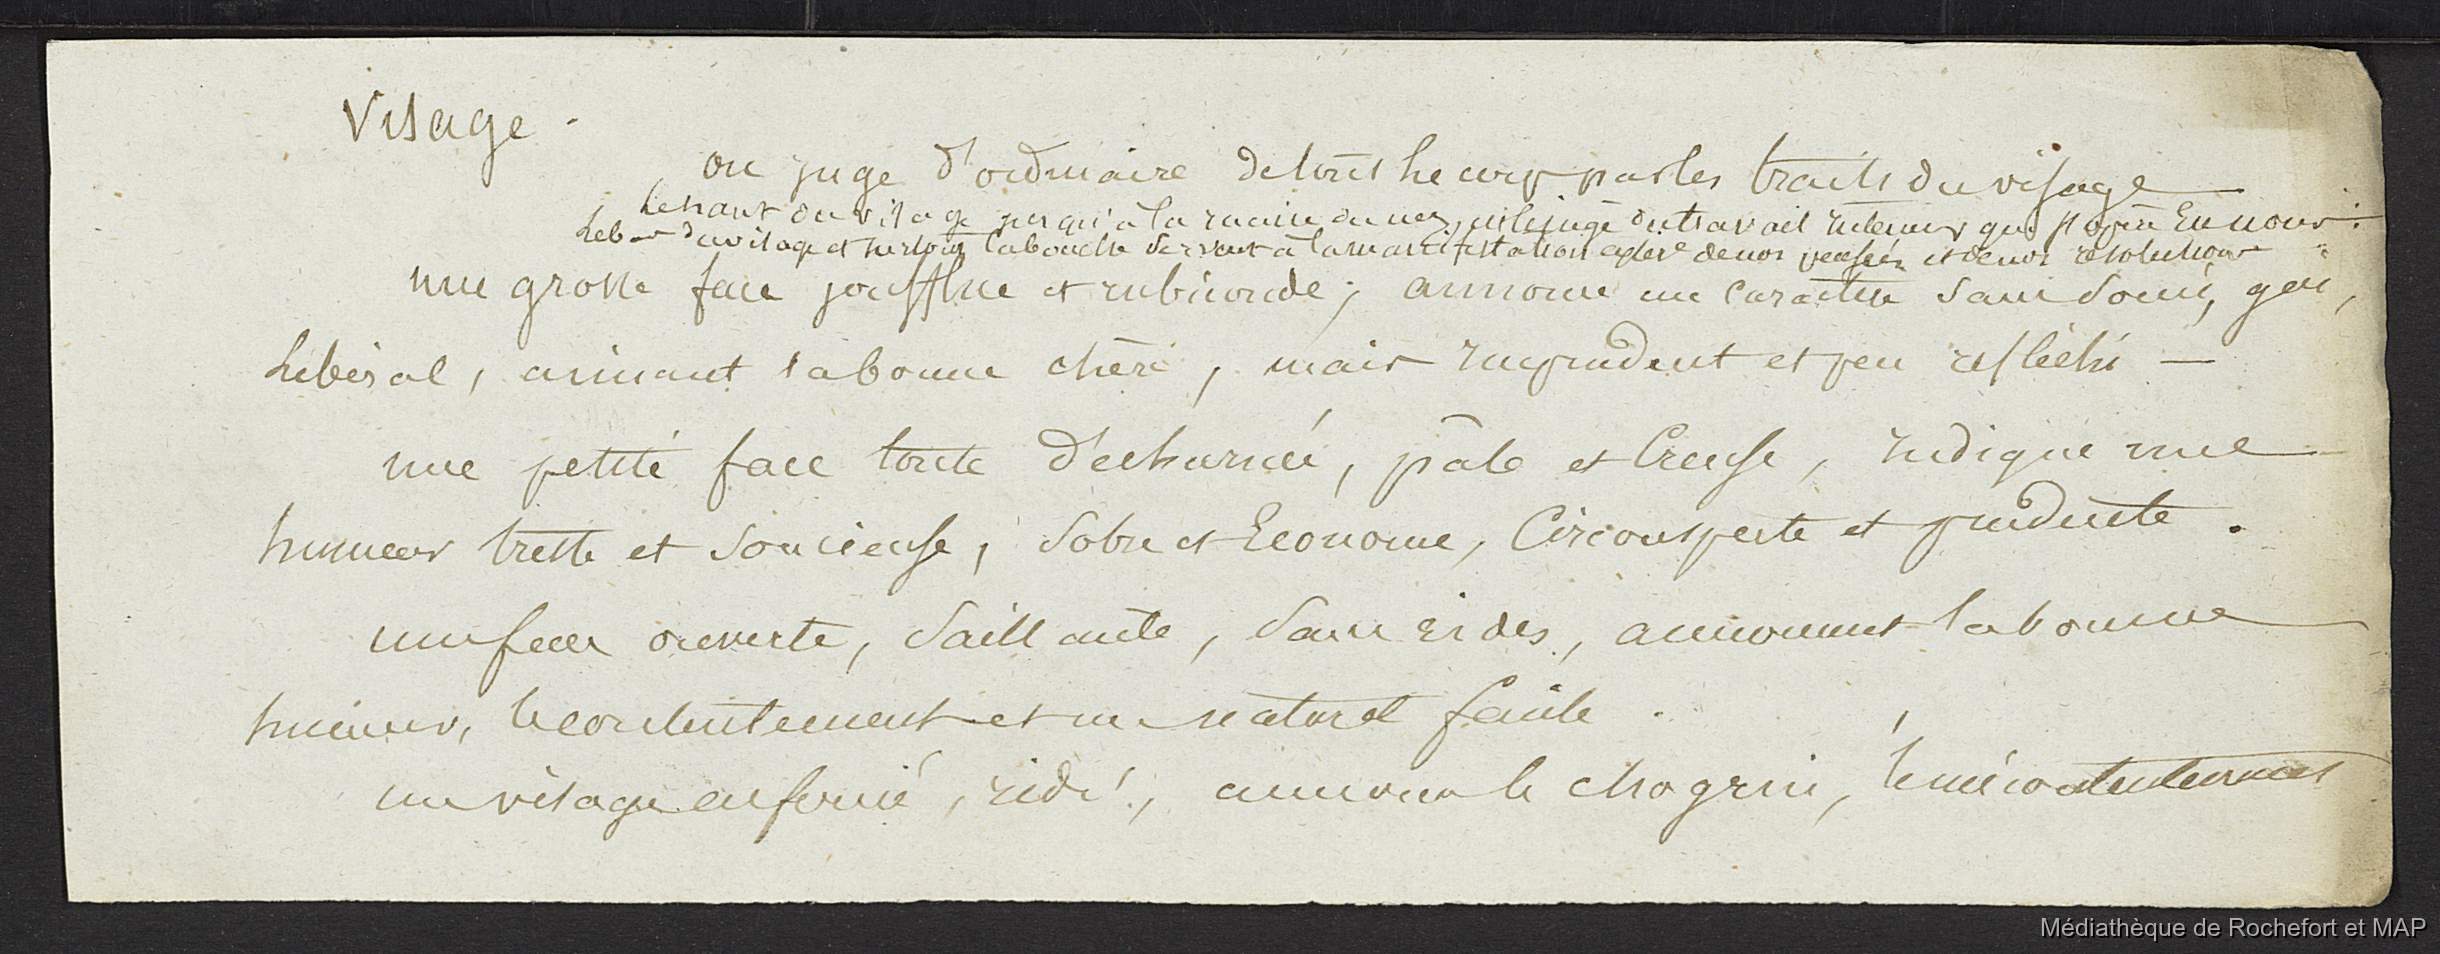 Visage.
on juge d'ordinaire de tout le corps par les traits du visage
le haut du visage jusqu'à la racine du nez, est le siège du travail intérieur qui s'opère en nous :
le bas du visage et surtout la bouche servent à la manifestation de nos pensées et de nos résolutions
une grosse face joufflue et rubiconde, annonce un caractère sans souci, gai,
libéral, aimant la bonne chère, mais imprudent et peu réfléchi —
une petite face toute décharnée, pâle et creuse, indique une
humeur triste et soucieuse, sobre et économe, circonspecte et prudente.
une face ouverte, saillante, sans rides, annoncent la bonne
humeur, le contentement et un naturel facile.
un visage enfoncé, ridé, annonce le chagrin, le mécontentement
Médiathèque de Rochefort et MAP